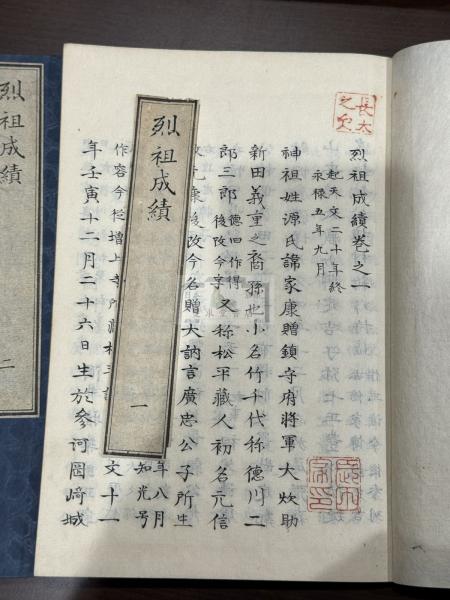 烈祖成績卷之一
起天文二十年終
永祿五年九月
神祖姓源氏諱家康贈鎮守府將軍大炊助
新田義重之裔孫也小名竹千代称德川二
郎三郎德田作得後改今字又称松平藏人初名元信
康後改今名贈大訥言廣忠公子所生
年八月
知光号
作容今從增上寺所藏
文十一
年壬寅十二月二十六日生於參河岡崎城
烈祖成績
一
烈祖成績
二